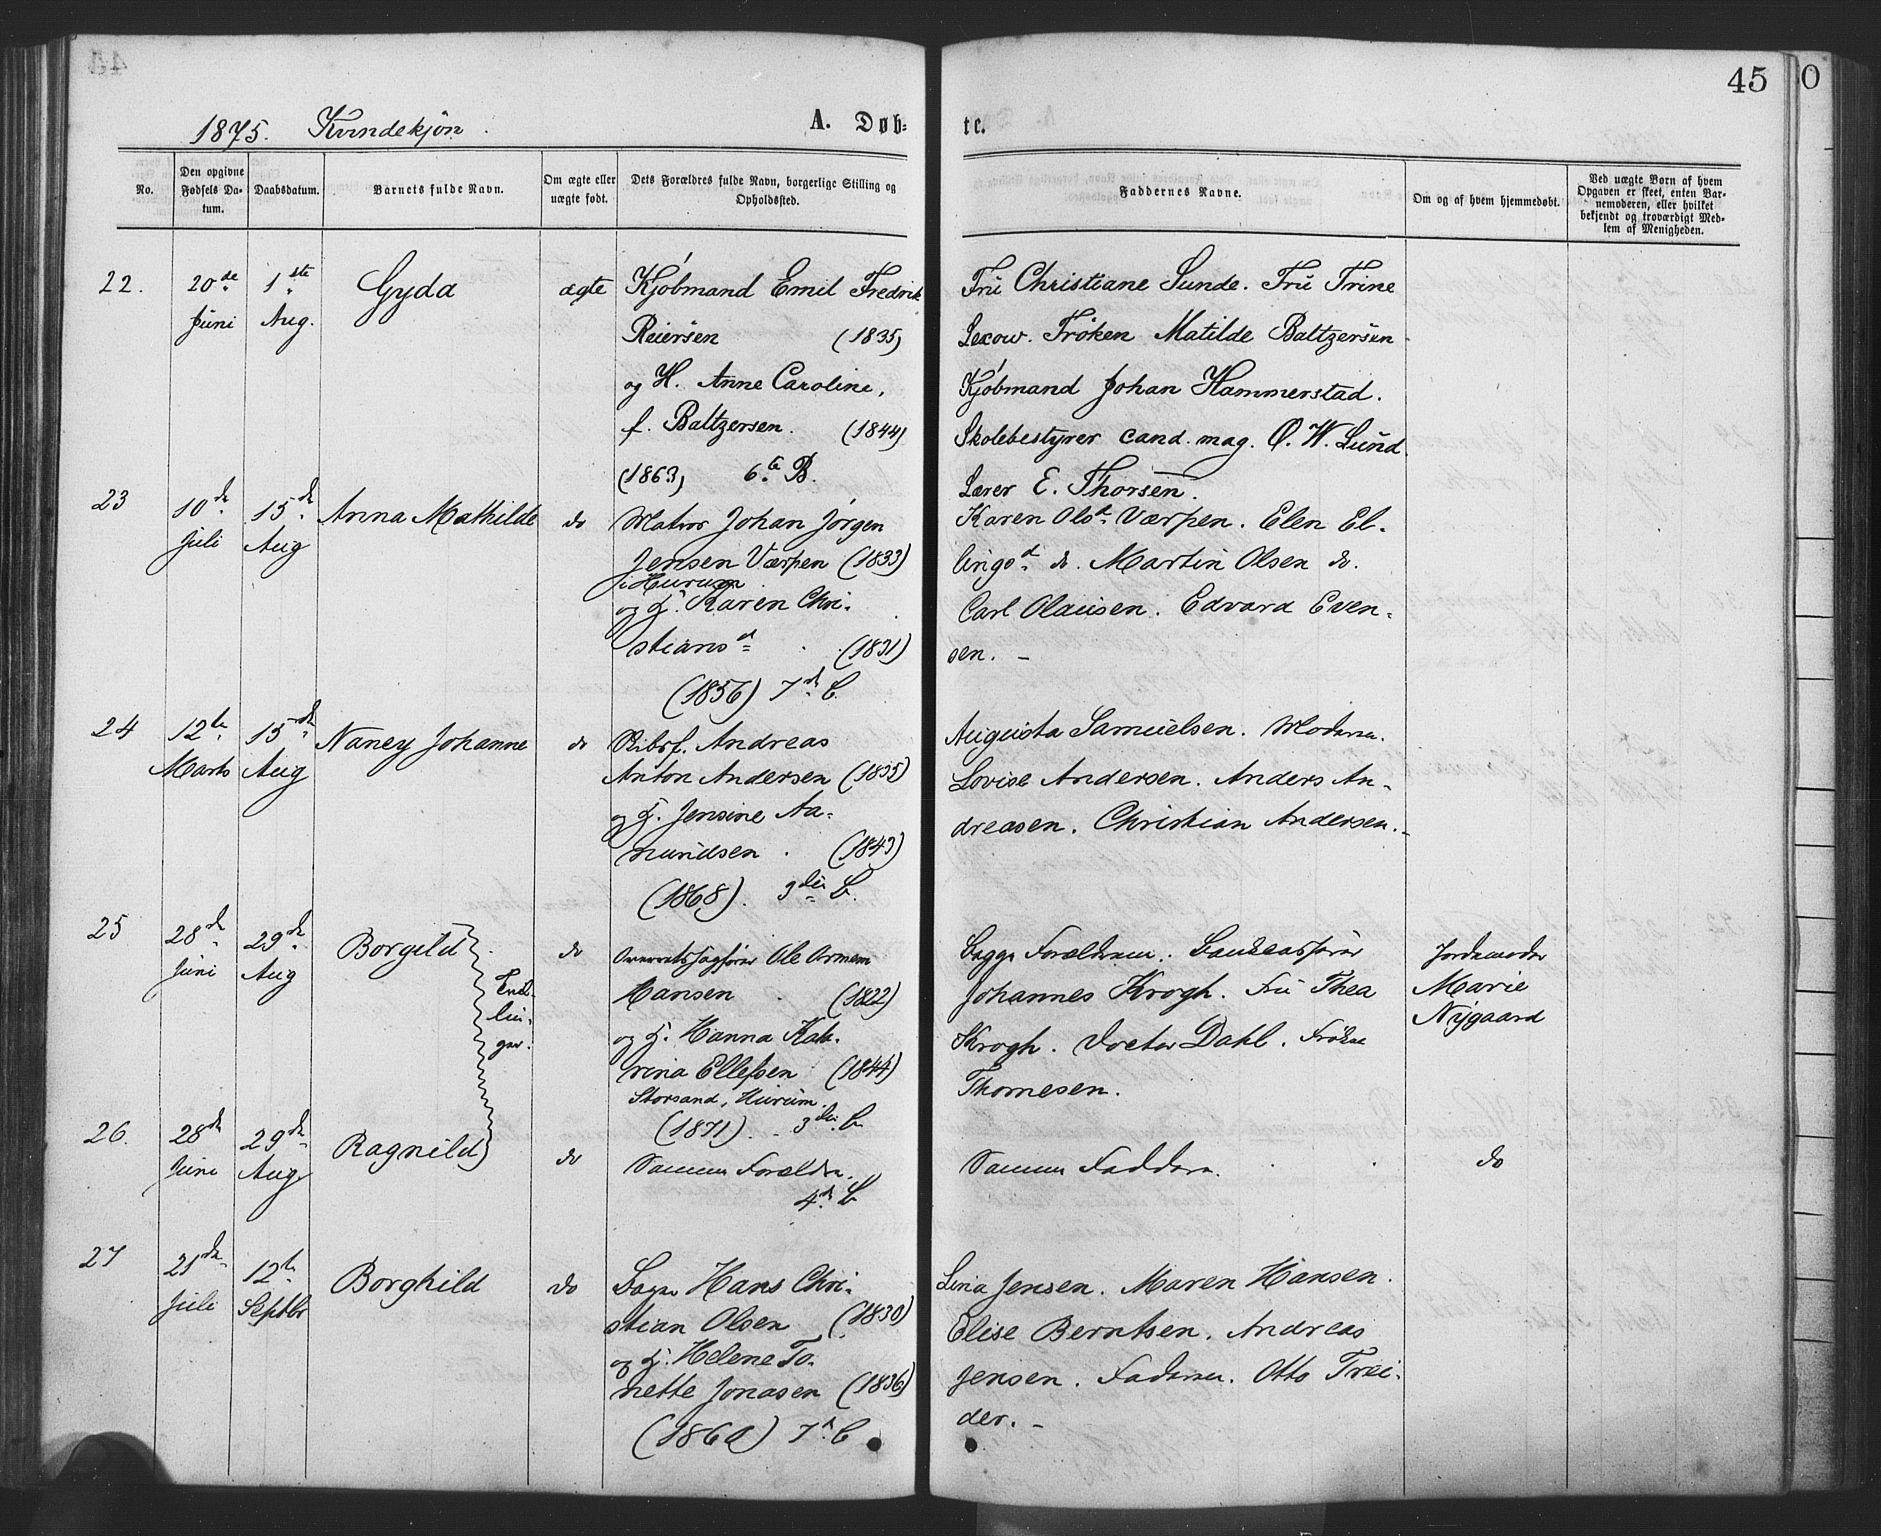 45
1875. Kvindekjön.
A. Døb-
te.
No.
Den opgivne Fødsels Da-
tum.
Daabsdatum.
Barnets fulde Navn.
Om ægte eller
uægte født.
Dets Forældres fulde Navn, borgerlige Stilling og
Opholdssted.
Faddernes Navne.
Om og af hvem hjemmedøbt.
Ved uægte Børn af hvem
Opgaven er skeet, enten Bar-
nemoderen, eller hvilket
bekjendt og troværdigt Med-
lem af Menigheden.
22.
20de
Juni
1ste
Aug.
Gyda
ægte
Kjöbmand Emil Fredrik
Reiersen (1835)
og H. Anne Caroline,
f. Baltzersen. (1844)
(1863) 6te B.
Fru Christiane Sunde. Fru Trine
Lexow. Fröken Matilde Baltzersen
Kjöbmand Johan Hammerstad.
Skolebestyrer cand. mag. O. W. Lund.
Lærer E. Thorsen.
23
10de
Juli
15de
Aug
Anna Mathilde
do
Matros Johan Jörgen
Jensen Værpen (1833)
i Hurum
og H. Karen Chri-
stiansd (1831)
(1856) 7de B.
Karen Olsd Værpen. Elen El-
lingsd do. Martin Olsen do.
Carl Olausen. Edvard Even-
sen.
24
12te
Marts
15de
Aug
Nancy Johanne
do
Andreas
Anton Andersen (1835)
og H. Jensine Aa-
mundsen (1843)
(1868). 3die B.
Augusta Samuelsen. Moderen.
Lovise Andersen. Anders An-
dreasen. Christian Andersen.
25
28de
Juni
29de
Aug
Borgild
Tvil-
lin-
ger.
do
Overretssagförer Ole Ormem
Hansen (1822)
og H. Hanna Kat-
rina Ellefsen (1844)
Storsand, Hurum.
(1871). 3die B.
Begge Forældrene.
Johannes Krogh. Fru Thea
Krogh. Doctor Dahl. Fröken
Thomesen.
Jordemoder
Marie
Nygaard
26.
28de
Juni
29de
Aug
Ragnild
do
Samme Forældre.
4de B
Samme Faddere.
do
27
21de
Juli
12te
Septbr
Borghild
do
Hans Chri-
stian Olsen (1830)
og H. Helene To-
nette Jonasen (1836)
(1860) 7de B
Lina Jensen. Maren Hansen.
Elise Berntsen. Andreas
Jensen. Faderen. Otto Trei-
der.